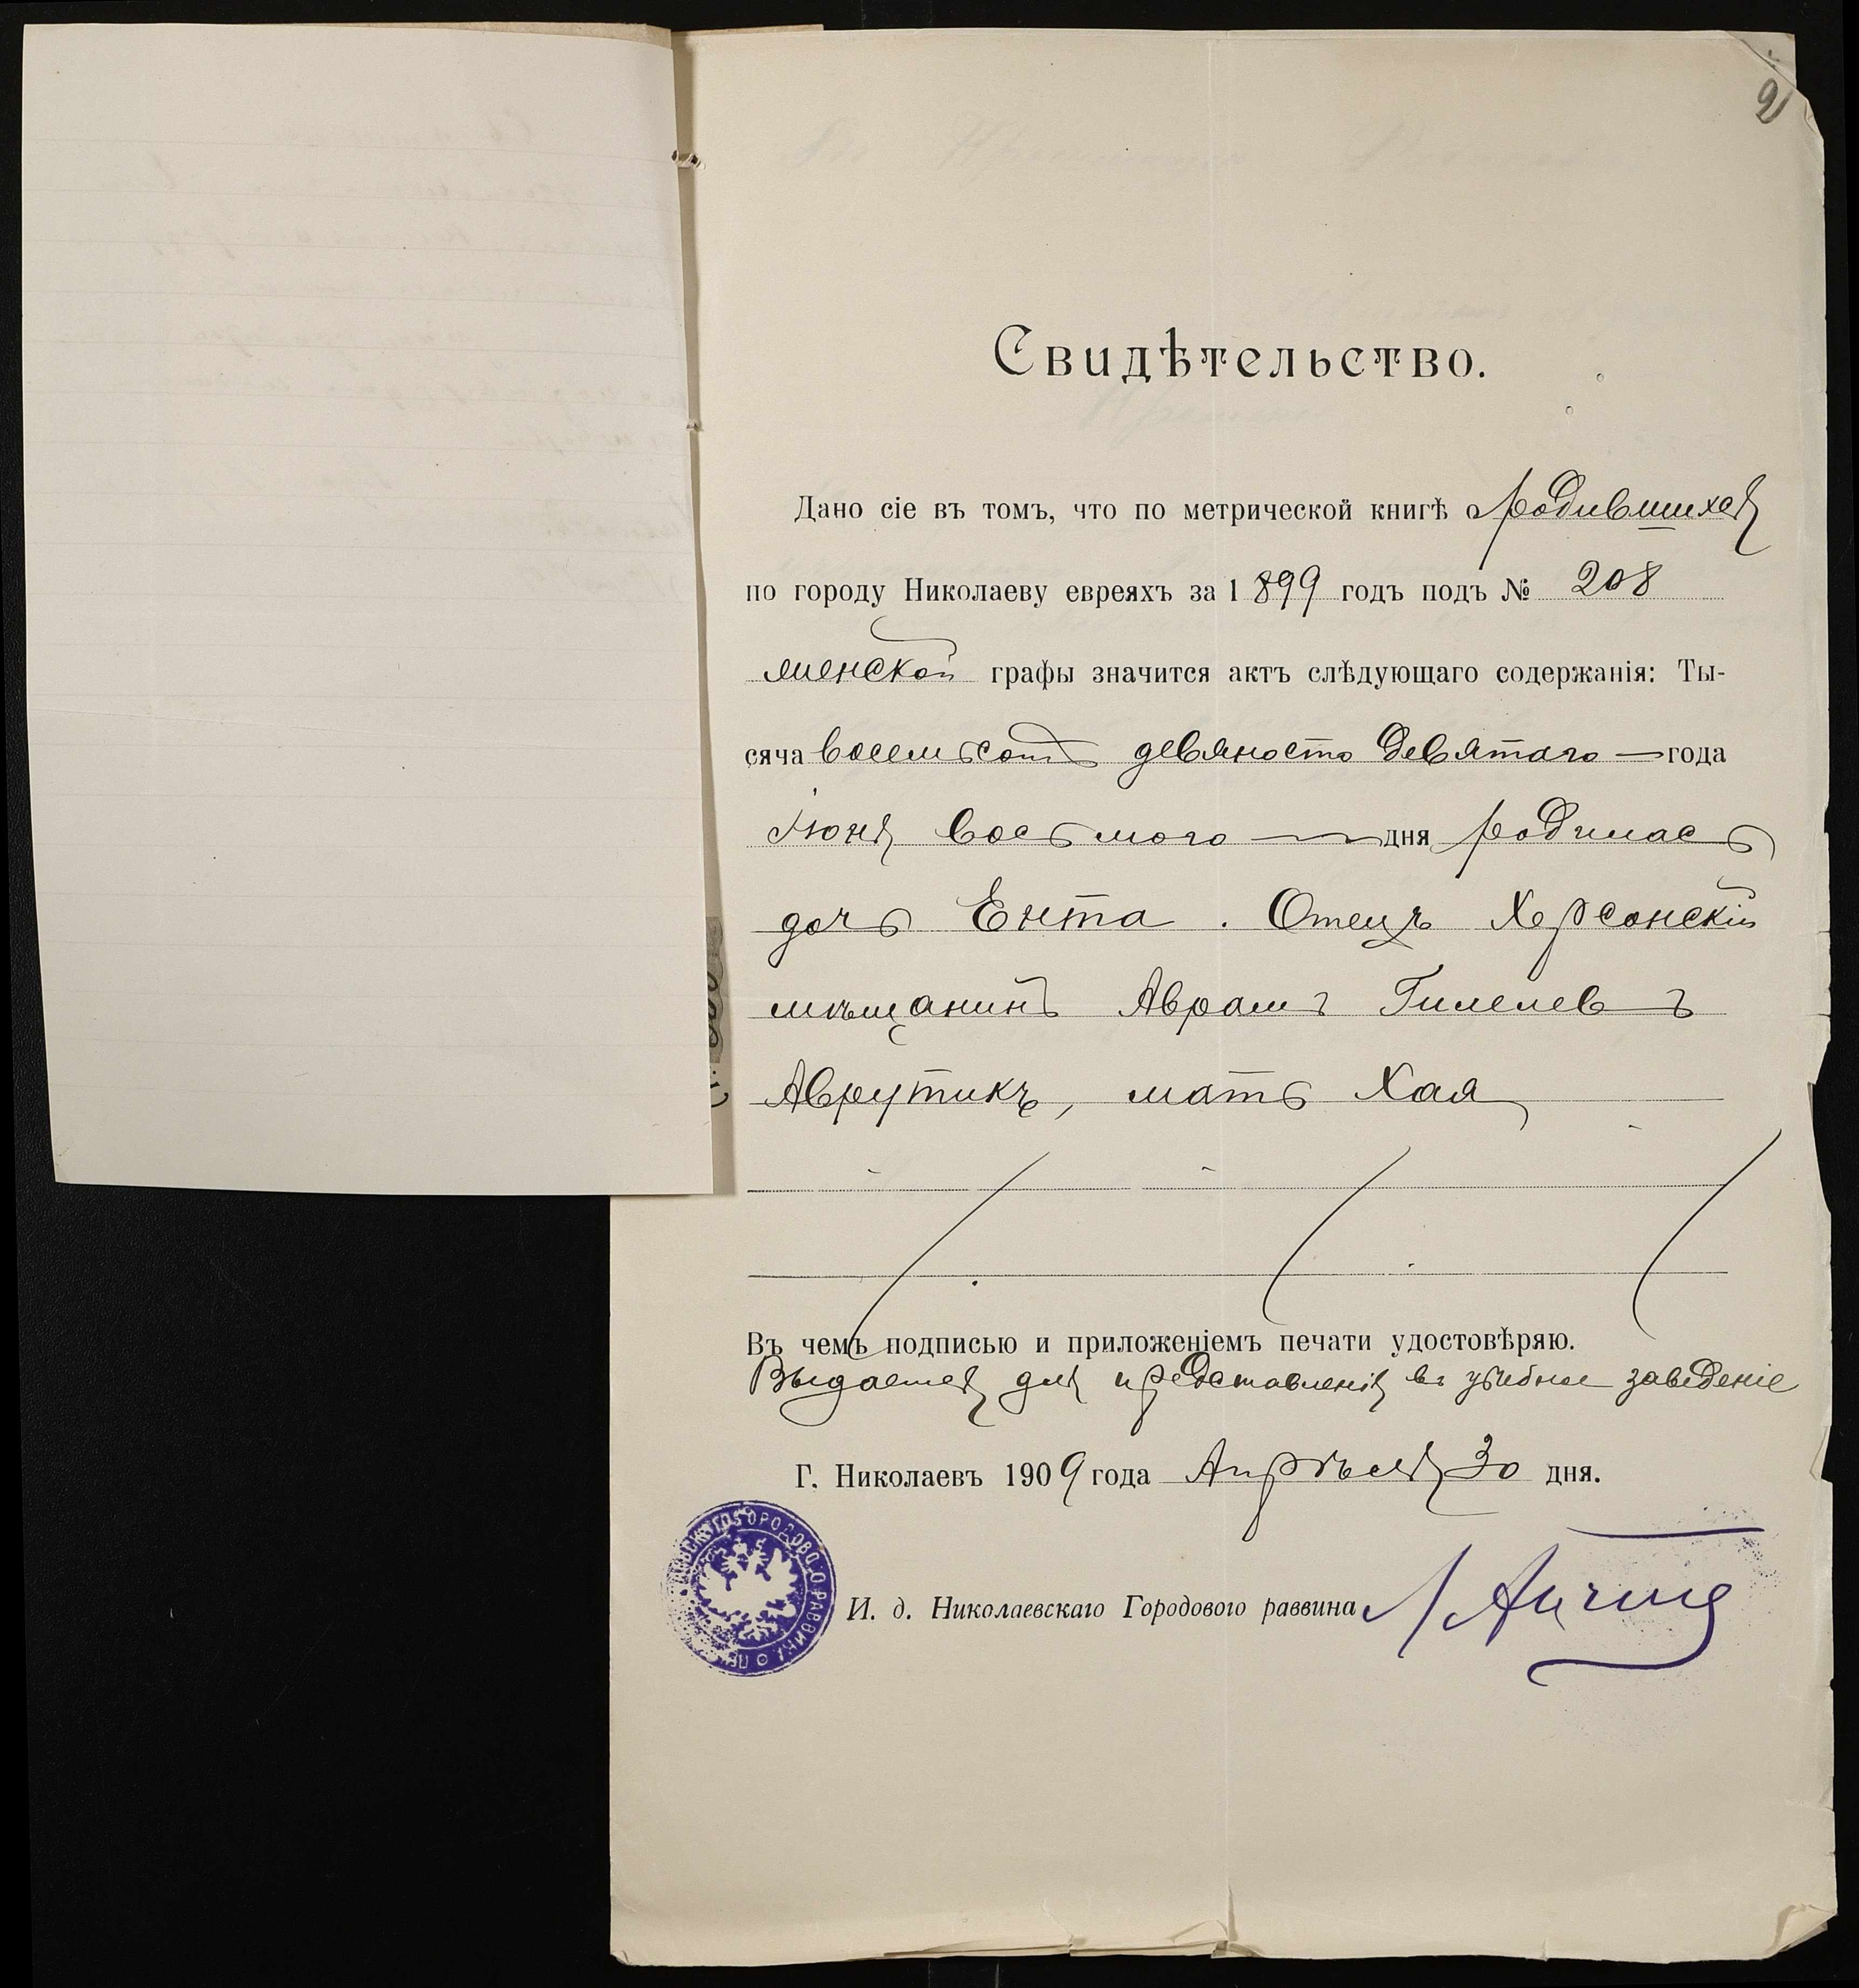 2
Свидѣтельство.
Дано сіе въ томъ, что по метрической книгѣ о родившихся
по городу Николаеву евреяхъ за 1899 годъ подъ № 208
женской графы значится актъ слѣдующаго содержанія: Ты-
сяча восемьсотъ девяносто девятаго года
Іюня восьмого дня родилась
дочь Ента. Отецъ Херсонскій
мѣщанинъ Аврамъ Гилелевъ
Аврутикъ, мать Хая
Въ чемъ подписью и приложеніемъ печати удостовѣряю.
Выдается для представленія въ учебное заведеніе
Г. Николаевъ 1909 года Апрѣля 30 дня.
И. д. Николаевскаго Городового раввина